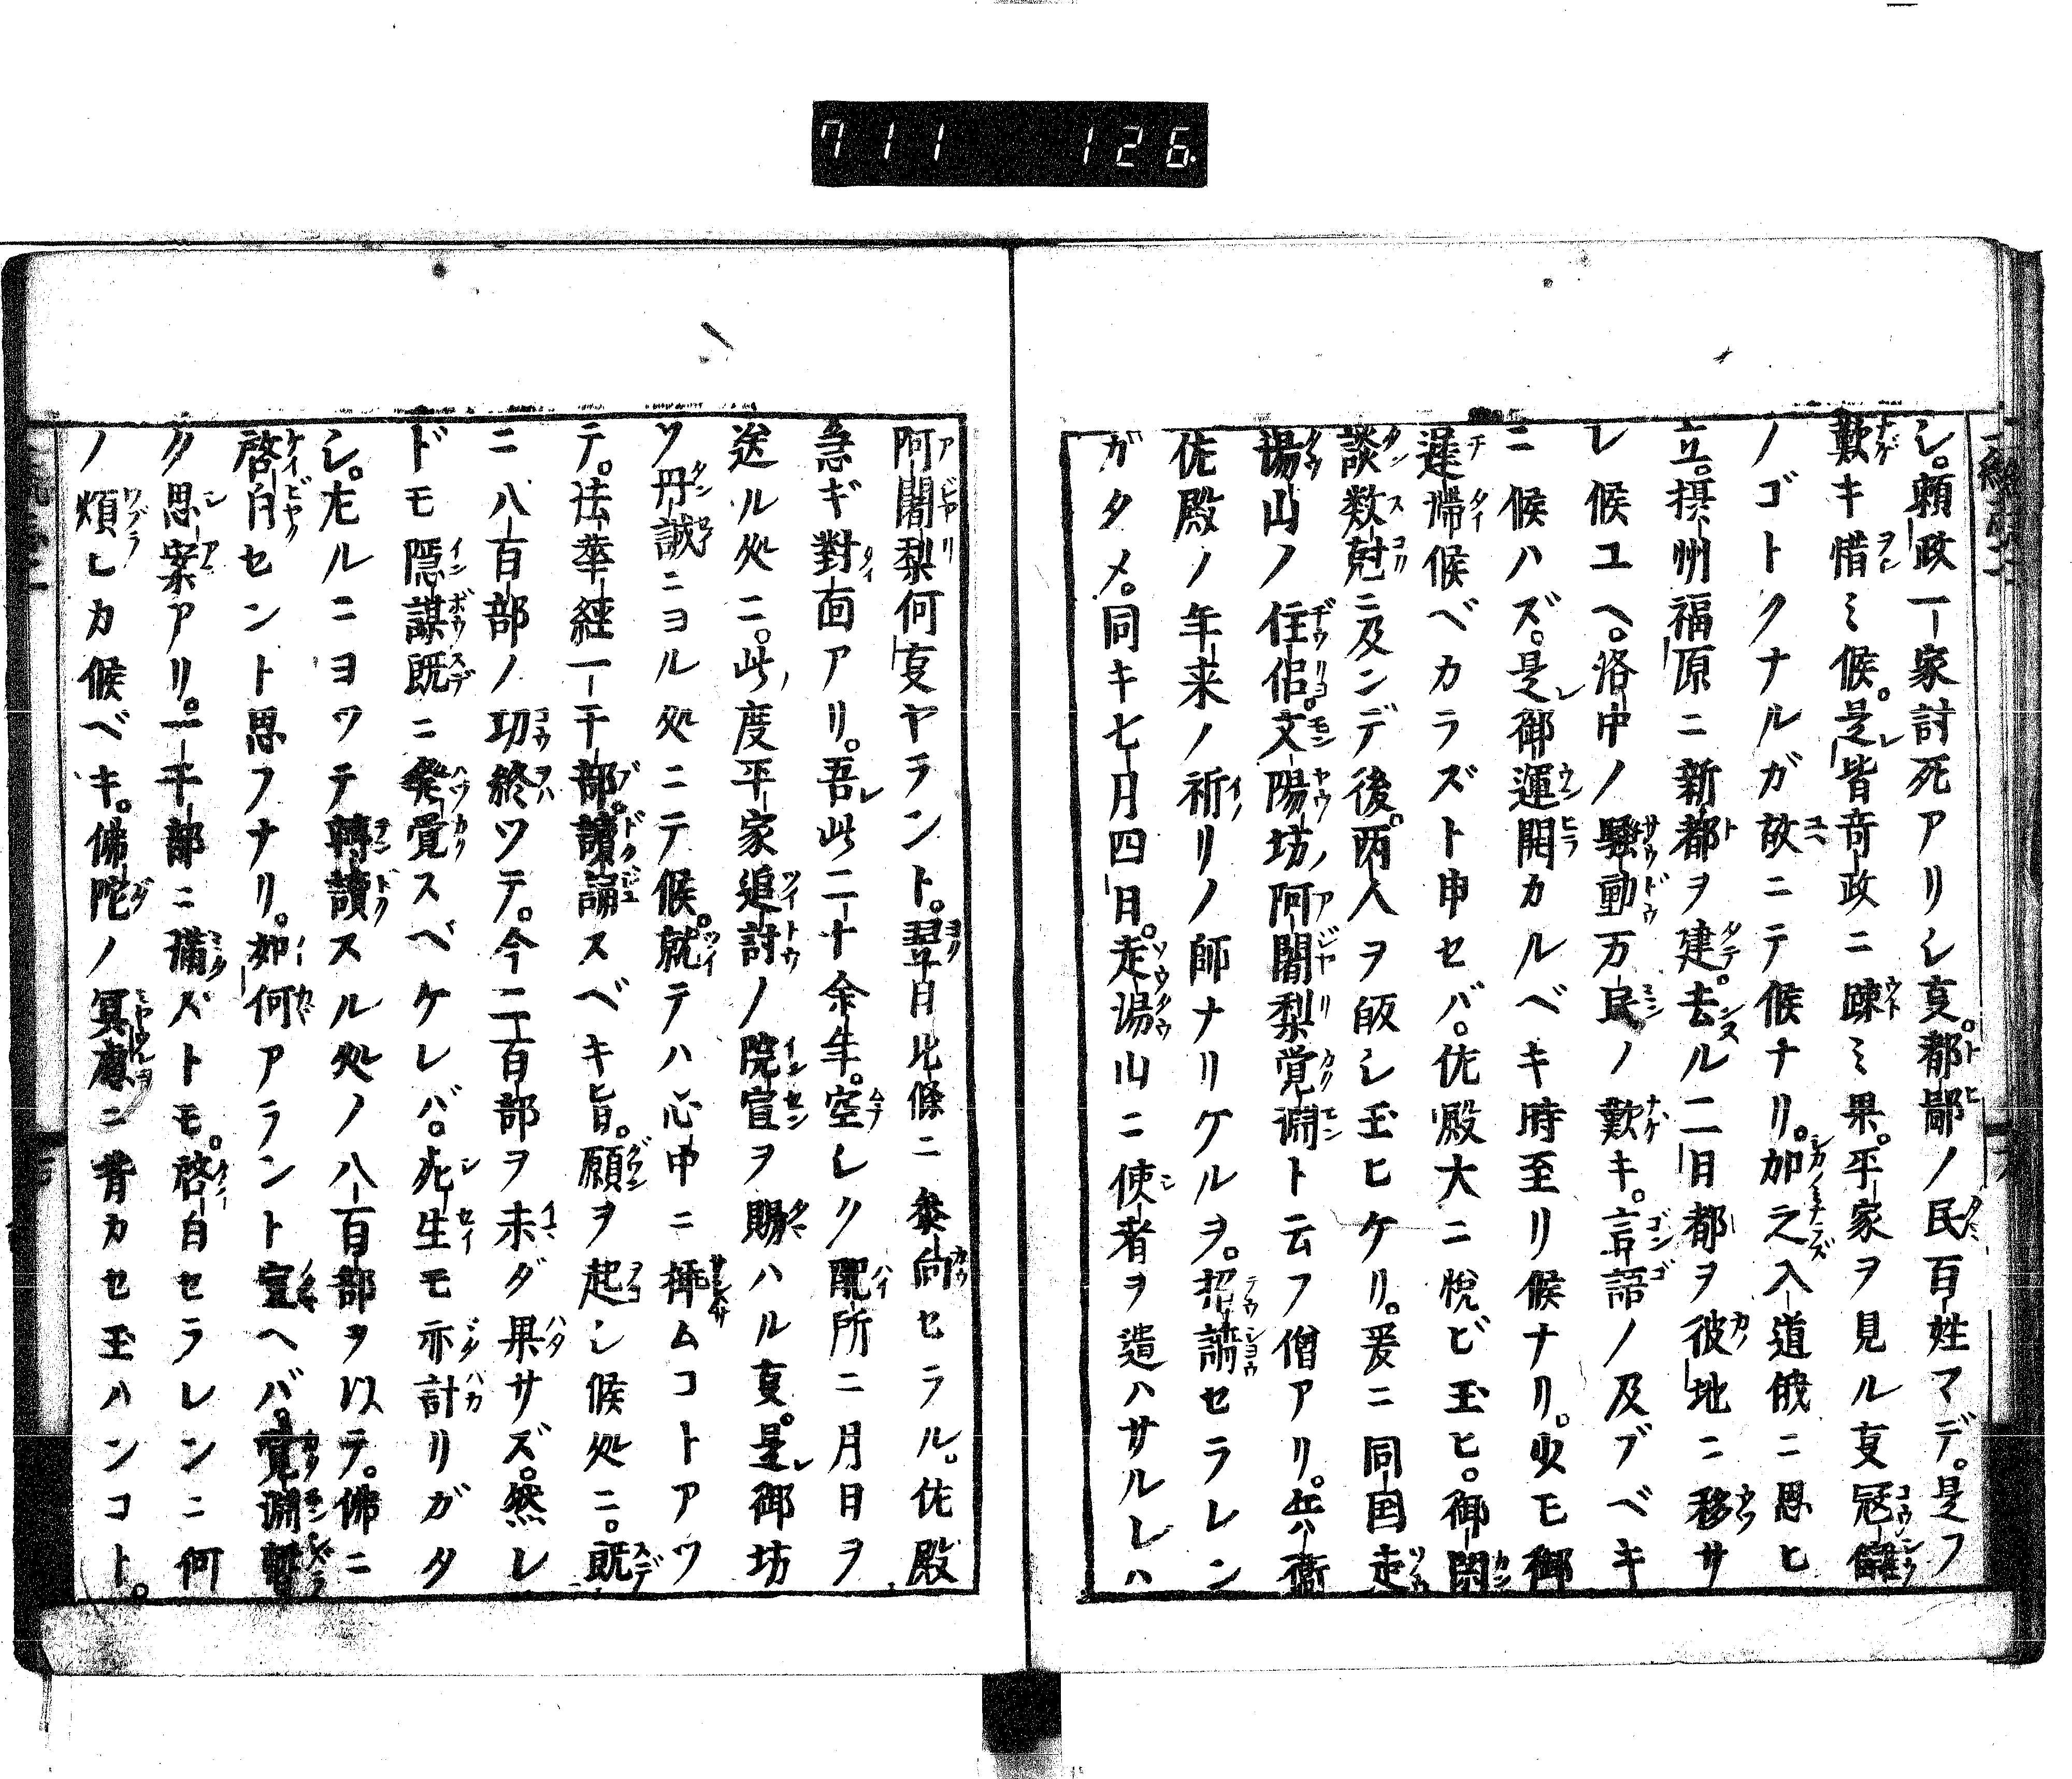 711 126.
シ。頼政一家討死アリシ事。都鄙ノ民百姓マデ。是フ
歎キ惜ミ候。是皆竒政ニ疎ミ果。平家ヲ見ル事冦讎
ノゴトクナルガ故ニテ候ナリ。加之入道俄ニ思ヒ
立。摂州福原ニ新都ヲ建。去ル二日都ヲ彼地ニ移サ
レ候ユヘ。洛中ノ騒動万民ノ歎キ。言語ノ及ブベキ
ニ候ハズ。是御運開カルベキ時至リ候ナリ。必モ御
遅滞候ベカラズト申セバ。佐殿大ニ悦ビ玉ヒ。御閑
談数尅ニ及ンデ後。両人ヲ皈シ玉ヒケリ。爰ニ同国走
湯山ノ住侶。文陽坊ノ阿闍梨覚淵ト云フ僧アリ。兵衞
佐殿ノ年来ノ祈リノ師ナリケルヲ。招請セラレン
ガタメ。同キ七月四日。走湯山ニ使者ヲ遣ハサルレハ
阿闍梨何事ヤラント。翌日北條ニ参向セラル。佐殿
急ギ對面アリ。吾此二十余年。空シク配所ニ月日ヲ
送ル処ニ。此度平家追討ノ院宣ヲ賜ハル事。是御坊
ツ丹誠ニヨル処ニテ候。就テハ心中ニ挿ムコトアツ
テ。法華経一千部。讀誦スベキ旨。願ヲ起シ候処ニ。既
ニ八百部ノ功終ツテ。今二百部ヲ未ダ果サズ。然レ
ドモ隠謀既ニ発覚スベケレバ。死生モ亦計リガタ
シ。左ルニヨツテ轉讀スル処ノ八百部ヲ以テ。佛ニ
啓白セント思フナリ。如何アラント宣ヘバ。覚淵暫
ク思案アリ。一千部ニ滿ズトモ。啓白セラレンニ何
ノ煩ヒカ候ベキ。佛陀ノ冥慮ニ背カセ玉ハンコト。